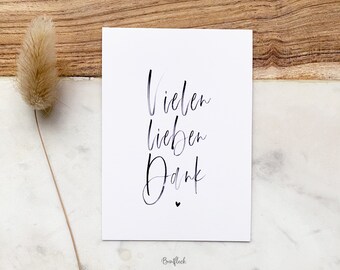 Vielen
lieben
Dank
Bunfleck